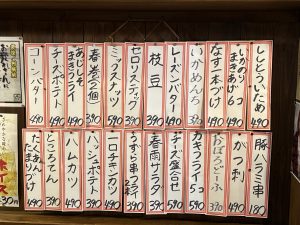 ししとういため 490
いかのりまきあげ6コ 490
なす一本づけ 490
いかめんち 390
レーズンバター 490
枝豆 390
セロリスティック 390
ミックスナッツ 390
春巻2個 390
あじしそまきフライ 490
チーズポテト 490
コーンバター 490
豚ハラミ串 180
がつ刺 490
おぼろどーふ 390
カキフライ5コ 590
チーズ盛合せ 590
春雨サラダ 390
うずら串フライ2本 390
コロチキカツ 490
ハッシュポテト 390
ハムカツ 390
ところてん 390
たくあん たまりづけ 490